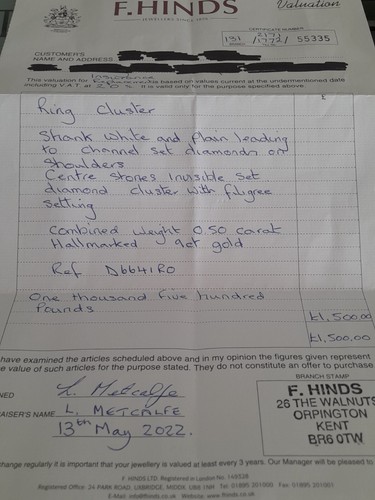 F.HINDS
Valuation
JEWELLERS SINCE 1856
CERTIFICATE NUMBER
131 / 1772 / 55335
BRANCH
CUSTOMER'S
NAME AND ADDRESS
This valuation for Insurance is based on values current at the undermentioned date
including V.A.T. at 20%. It is valid only for the purpose specified above.
£
Ring Cluster
Shank white and plain leading
to channel set diamonds on
shoulders
Centre stones invisible set
diamond cluster with filigree
setting
Combined weight 0.50 carat
Hallmarked 9ct gold
Ref D6641RO
One thousand five hundred
pounds
£1,500.00
£1,500.00
have examined the articles scheduled above and in my opinion the figures given represent
e value of such articles for the purpose stated. They do not constitute an offer to purchase
NED L. Metcalfe
AISER'S NAME L. METCALFE
13th May 2022.
BRANCH STAMP
F. HINDS
26 THE WALNUTS
ORPINGTON
KENT
BR6 0TW
change regularly it is important that your jewellery is valued at least every 3 years. Our Manager will be pleased to
F. HINDS LTD. Registered in London No. 149528
Registered Office: 24 PARK ROAD, UXBRIDGE, MIDDX. UB8 1NH Tel: 01895 201000 Fax: 01895 201001
E-Mail: info@fhinds.co.uk Website: www.fhinds.co.uk